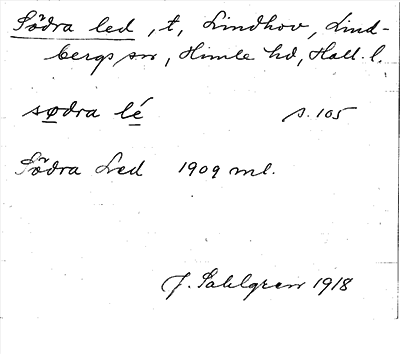 Södra led, t, Lindhov, Lind-
bergs sn, Himle hd, Hall. l.
sødra lé s. 105
Södra Led 1909 ml.
J. Sahlgren 1918